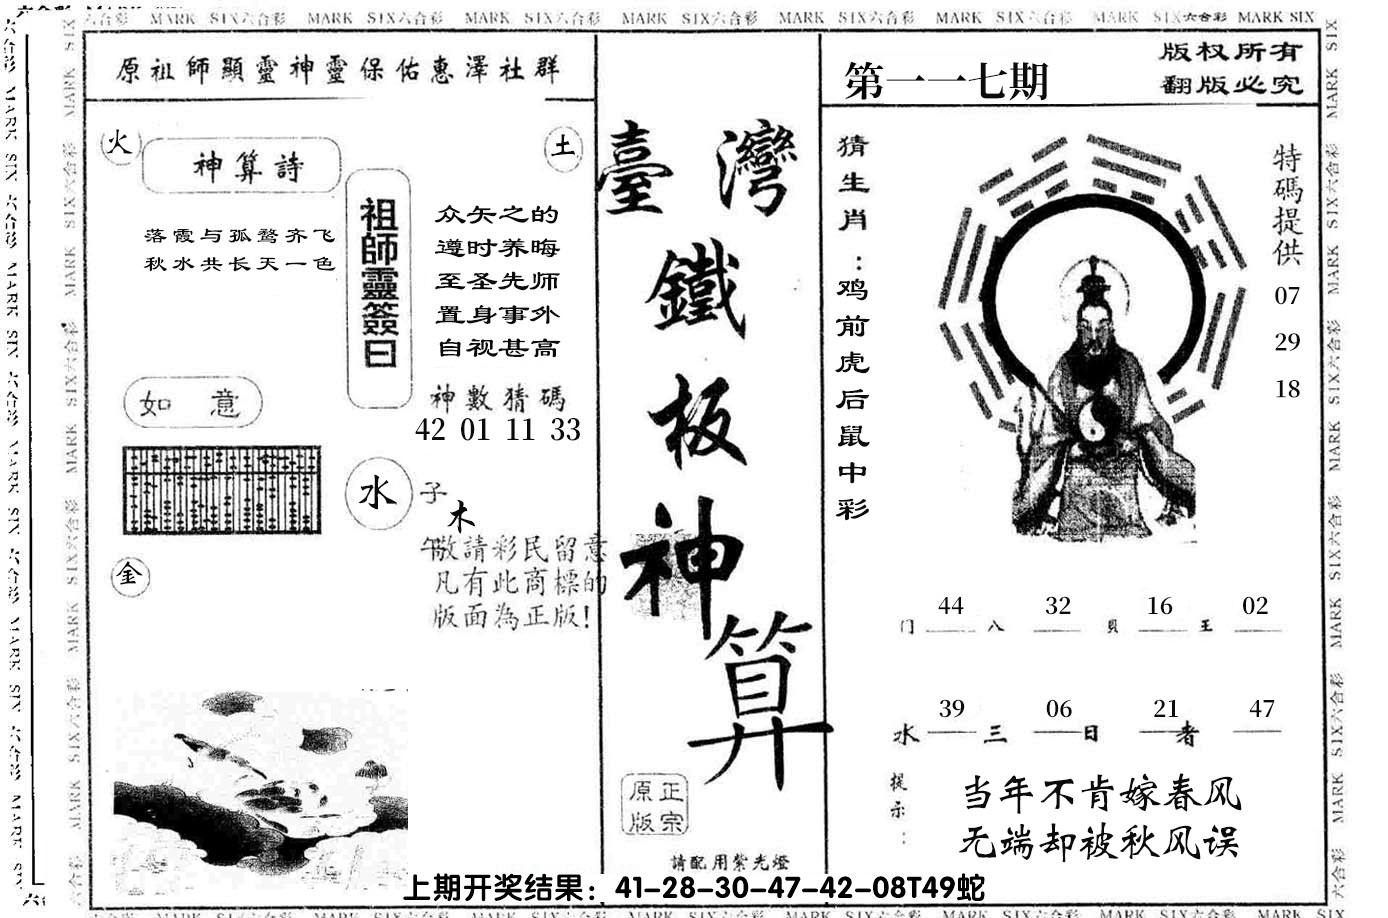 六合彩 MARK SIX六合彩 MARK SIX六合彩 MARK SIX六合彩 MARK SIX六合彩 MARK SIX六合彩 MARK SIX六合彩 MARK SIX六合彩 MARK SIX
原祖師顯靈神靈保佑惠澤社群
火
神算詩
土
落霞与孤鹜齐飞
秋水共长天一色
祖師靈簽曰
众矢之的
遵时养晦
至圣先师
置身事外
自视甚高
神數猜碼
42 01 11 33
如意
水
子
木
午
敬請彩民留意
凡有此商標的
版面為正版!
金
臺灣
鐵
板
神
算
正宗
原版
請配用紫光燈
第一一七期
版权所有
翻版必究
猜生肖：鸡前虎后鼠中彩
特碼提供
07
29
18
44 32 16 02
门 八 貝 王
39 06 21 47
水 三 日 者
提示：
当年不肯嫁春风
无端却被秋风误
上期开奖结果：41-28-30-47-42-08T49蛇